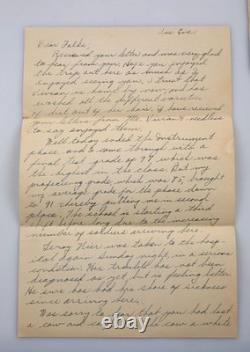 Tues Eve.
Dear Folks:
Received your letter and was very glad
to hear from you. Hope you enjoyed
the trip out here as much as I
enjoyed seeing you. I trust that
Vivian is home by now, and has
washed all the different varieties
of dirt out of her hair. I have received
letters from Mr. and needless
to say enjoyed them.
Well today ended the Instrument
phase and I came through with a
final test grade of 97 which was
the highest in the class. But my
proficiency grade, which was 85, brought
my average grade for the phase down
to 91 thereby putting me in second
place. The school is starting a third
shift before long due to the increasing
number of soldiers arriving here.
Leroy Hier was taken to the hosp-
ital again Sunday night, in a serious
condition. His trouble has not been
diagnosed as yet, but is feeling better.
He sure has had his share of sickness
since arriving here.
Was sorry to hear that you had lost
a cow and cow a while